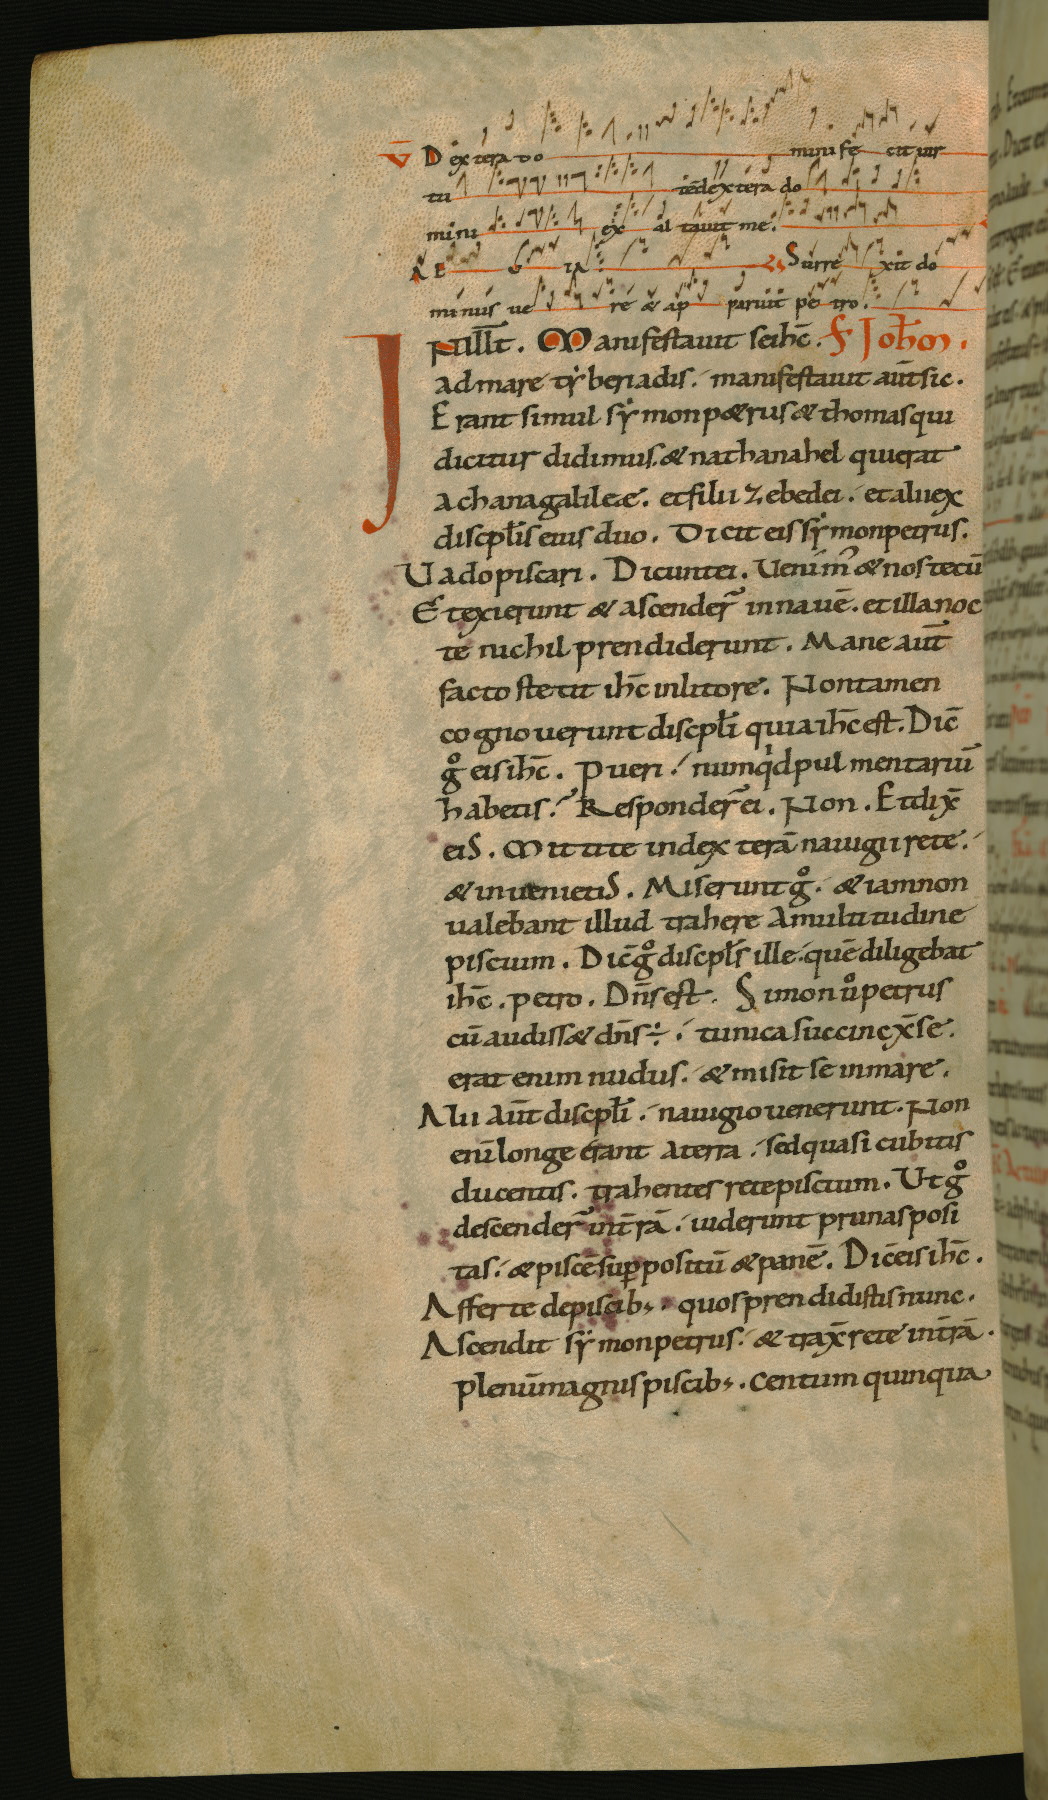 V Dextera do mini fe cit uir
tu tē dextera do
mini ex al tauit me.
AE U IA Surre xit do
minus ue re & ap paruit pe tro.
IN illt̄. Manifestauit se ih̄c. S̄ Joh̄em.
ad mare tẏberiadis. manifestauit aūt sic.
Erant simul sẏmon p&rus & thomas qui
dicitur didimus. & nathanahel qui erat
achana galileæ. et filii zebedei. et alii ex
discpl̄is eius duo. Dicit eis sẏmon petrus.
Uado piscari. Dicunt ei. Uenim᷒ & nos tecū
Et exierunt & ascender̄ in nauē. et illa noc
te nichil prendiderunt. Mane aūt
facto stetit ih̄c in litore. Non tamen
cognouerunt discpl̄i quia ih̄c est. Dic̄
gͦ eis ih̄c. Pueri. numqͥd pulmentariū
habetis? Responder̄ ei. Non. Et dix̄
eis. Mittite in dexterā nauigii rete.
& inuenietis. Miserunt gͦ. & iam non
ualebant illud trahere a multitudine
piscium. Dic̄ gͦ discpl̄s ille. quē diligebat
ih̄c. petro. Dn̄s est. Simon uͦ petrus
cū audiss& dn̄s ÷. tunica succinc̄x se.
erat enim nudus. & misit se in mare.
Alii aūt discpl̄i. nauigio uenerunt. Non
enī longe erant a terra. sed quasi cubitis
ducentis. trahentes rete piscium. Ut gͦ
descender̄ in t̄rā. uiderunt prunas posi
tas. & piscē suppositū & panē. Dic̄ eis ih̄c.
Afferte de piscib;. quos prendidistis nunc.
Ascendit sẏmon petrus. & trax̄ rete in t̄rā.
plenū magnis piscib;. centum quinqua